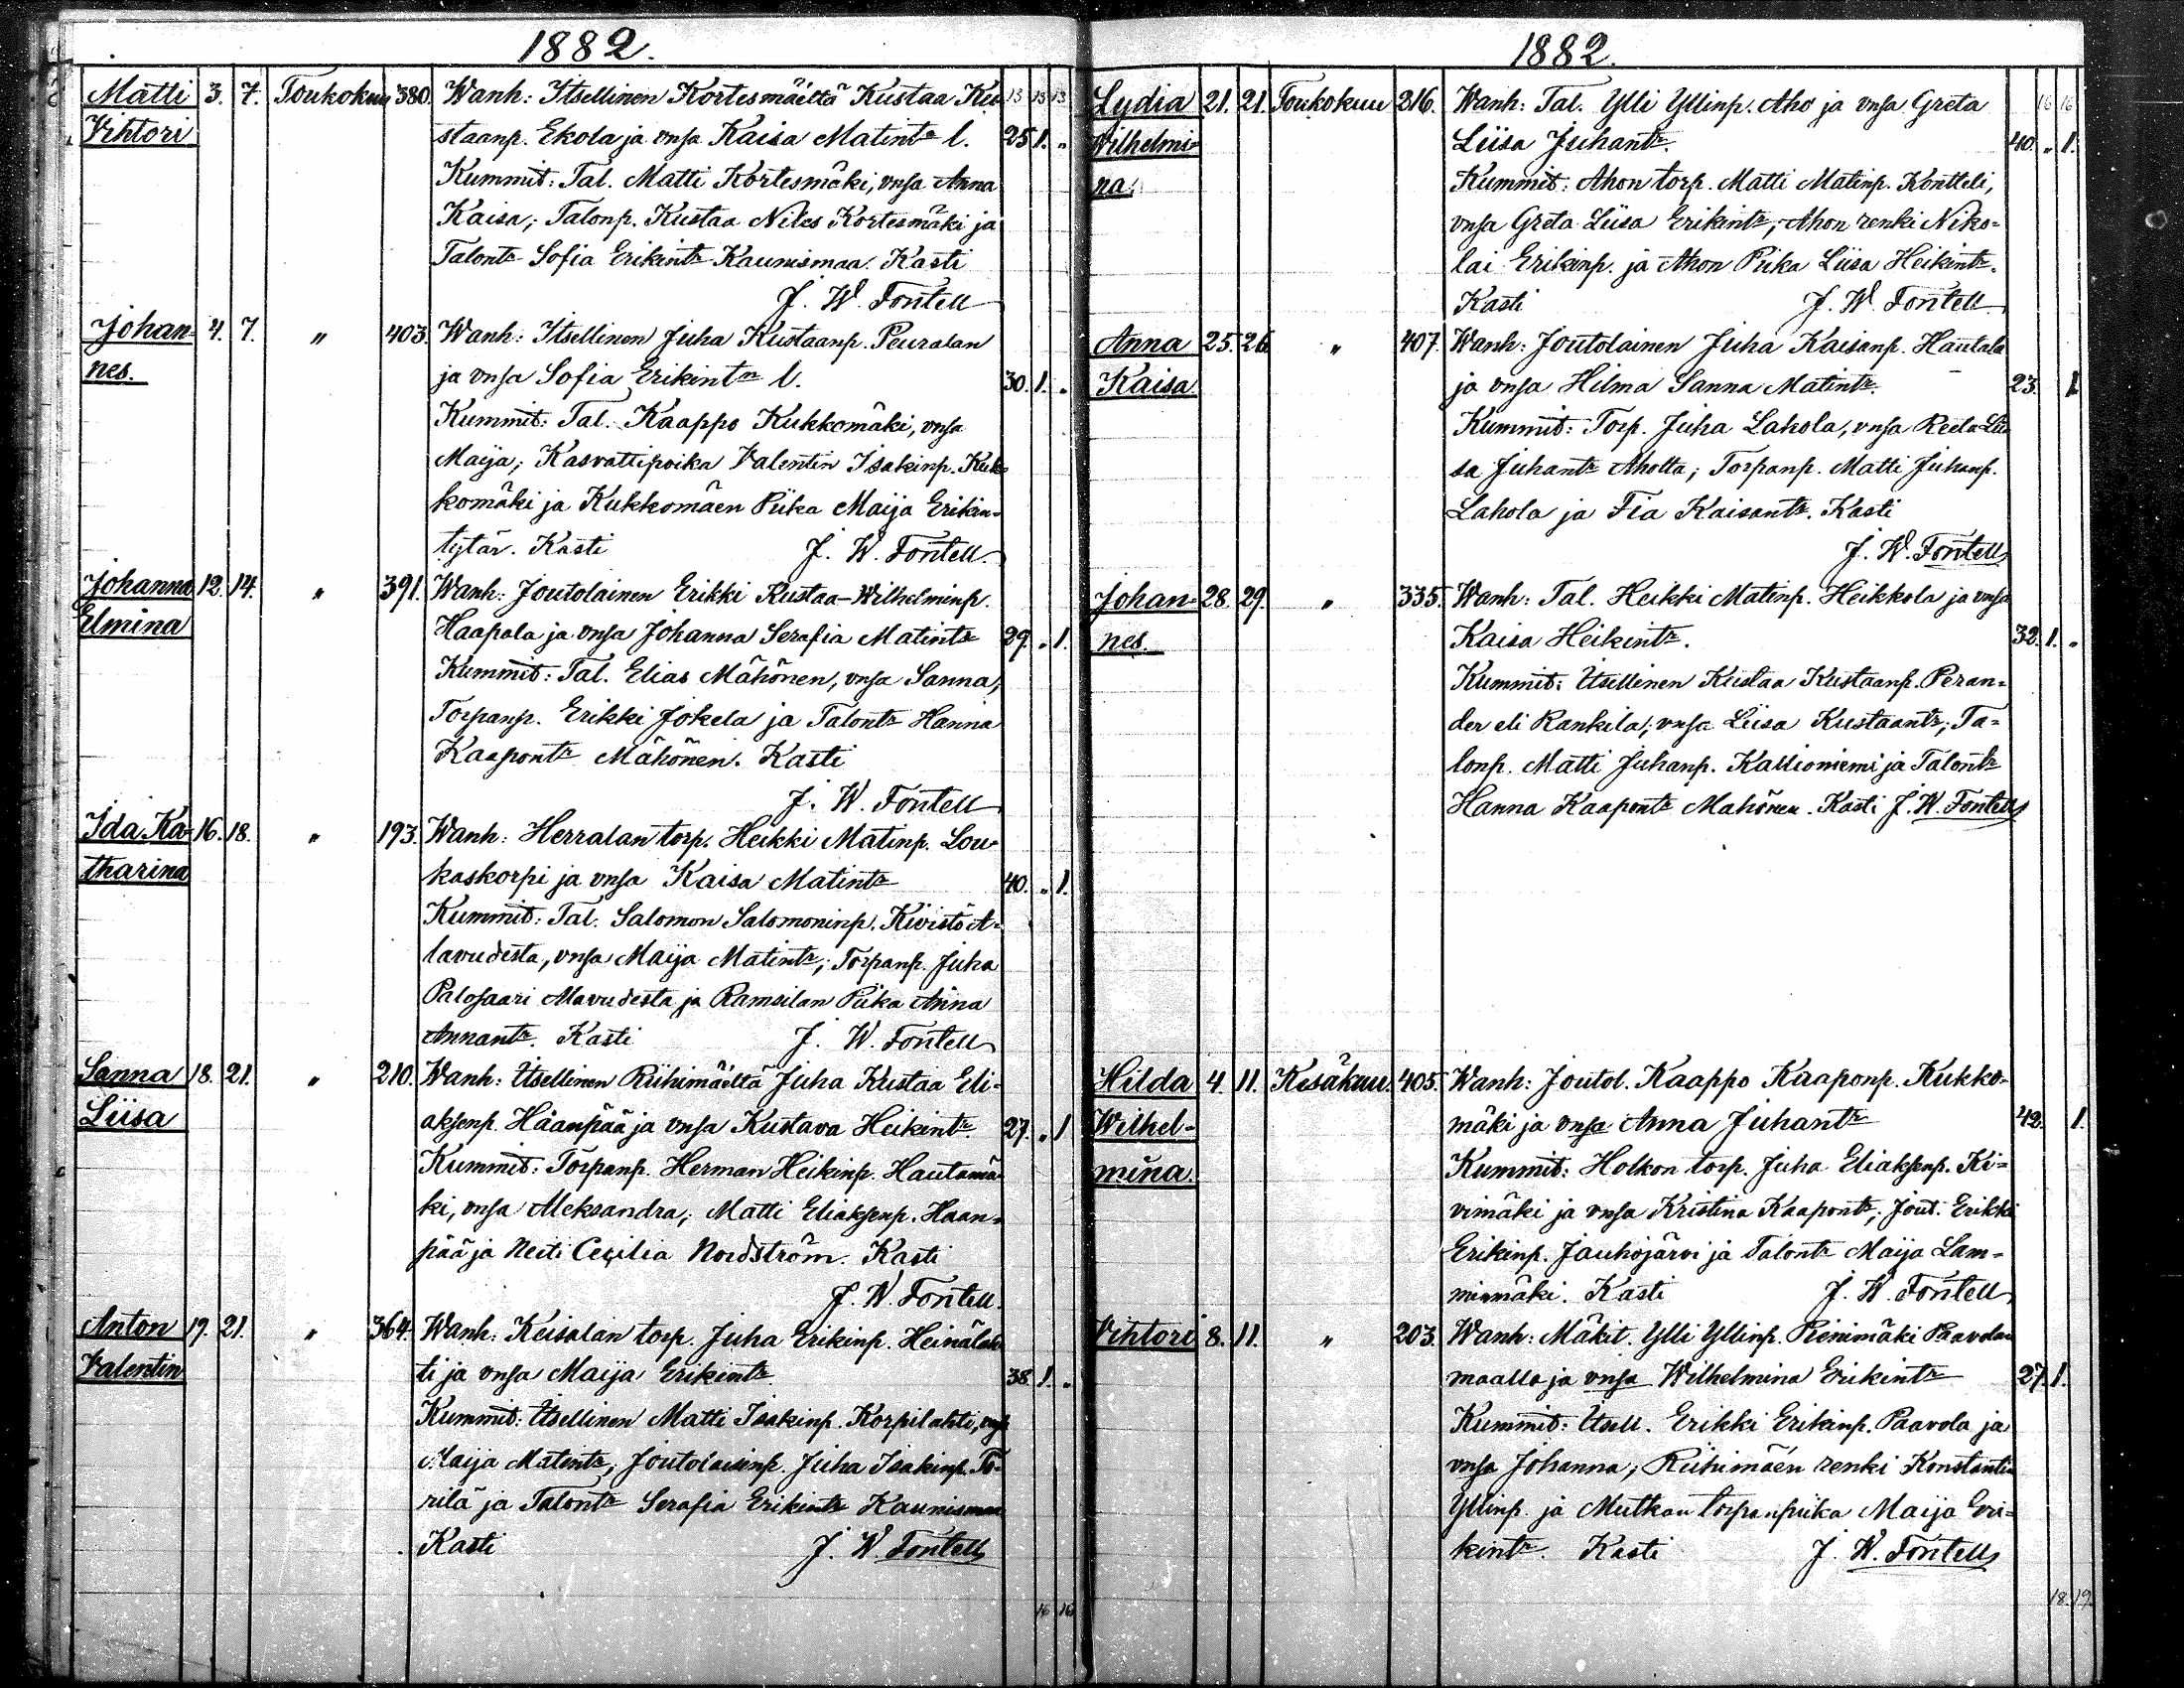 1882.
Matti 3. 7. Toukokuu 380. Wanh: Itsellinen Kortesmäeltä Kustaa Ku- 13 13 13
Vihtori staanp. Ekola ja vmsa Kaisa Matintr l. 25 1. "
Kummit: Tal. Matti Kortesmäki, vmsa Anna
Kaisa; Talonp. Kustaa Niles Kortesmäki ja
Talontr Sofia Erikintr Kaunismaa. Kasti
J. W. Fontell
Johan- 4. 7. " 403. Wanh: Itsellinen Juha Kustaanp. Peuralan
nes. ja vmsa Sofia Erikintr l. 30. 1. "
Kummit: Tal. Kaappo Kukkomäki, vmsa
Maija; Kasvattipoika Valentin Isakinp. Kuk-
komäki ja Kukkomäen Piika Maija Erikin-
tytär. Kasti J. W. Fontell.
Johanna 12. 14. " 391. Wanh: Joutolainen Erikki Kustaa-Wilhelminp.
Elmina Haapala ja vmsa Johanna Serafia Matintr 29. " 1.
Kummit: Tal. Elias Mähönen, vmsa Sanna,
Torpanp. Erikki Jokela ja Talontr Hanna
Kaapontr Mähönen. Kasti
J. W. Fontell
Ida Ka- 16. 18. " 193. Wanh: Herralan torp. Heikki Matinp. Lou-
tharina kaskorpi ja vmsa Kaisa Matintr 40. " 1.
Kummit: Tal. Salomon Salomoninp. Kivistö A-
lavudesta, vmsa Maija Matintr; Torpanp. Juha
Palosaari Alavudesta ja Ramsilan Piika Anna
Annantr. Kasti J. W. Fontell
Sanna 18. 21. " 210. Wanh: Itsellinen Riihimäeltä Juha Kustaa Eli-
Liisa aksenp. Haanpää ja vmsa Kustava Heikintr. 27. " 1
Kummit: Torpanp. Herman Heikinp. Hautamä-
ki, vmsa Aleksandra; Matti Eliaksenp. Haan-
pää ja Neiti Cecilia Nordström. Kasti
J. W. Fontell.
Anton 19. 21. " 364. Wanh: Keisalan torp. Juha Erikinp. Heinälah-
Valentin ti ja vmsa Maija Erikintr. 38 1. "
Kummit: Itsellinen Matti Isakinp. Korpilahti, vmsa
Maija Matintr; Joutolaisenp. Juha Isakinp. Tö-
rilä ja Talontr Serafia Erikintr Kaunismaa
Kasti J. W. Fontell
16 16
1882.
Lydia 21. 21. Toukokuu 216. Wanh: Tal. Ylli Yllinp. Aho ja vmsa Greta 16 16
Wilhelmi- Liisa Juhantr. 40. " 1.
na. Kummit: Ahon torp. Matti Matinp. Kontteli,
vmsa Greta Liisa Erikintr; Ahon renki Niko-
lai Erikinp. ja Ahon Piika Liisa Heikintr.
Kasti J. W. Fontell
Anna 25. 26. " 407. Wanh: Joutolainen Juha Kaisanp. Hautala
Kaisa. ja vmsa Hilma Sanna Matintr. 23. 1
Kummit: Torp. Juha Lahola, vmsa Reeta Lii-
sa Juhantr Aholta; Torpanp. Matti Juhanp.
Lahola ja Fia Kaisantr. Kasti
J. W. Fontell
Johan- 28. 29. " 335. Wanh: Tal. Heikki Matinp. Heikkola ja vmsa
nes. Kaisa Heikintr. 32. 1. "
Kummit: Itsellinen Kustaa Kustaanp. Peran-
der eli Rankila, vmsa Liisa Kustaantr; Ta-
lonp. Matti Juhanp. Kallioniemi ja Talontr
Hanna Kaapontr Mähönen. Kasti J. W. Fontell
Hilda 4. 11. Kesäkuu. 405. Wanh: Joutol. Kaappo Kaaponp. Kukko-
Wilhel- mäki ja vmsa Anna Juhantr 42. 1.
mina. Kummit: Holkon torp. Juha Eliaksenp. Ki-
vimäki ja vmsa Kristina Kaapontr; Jout. Erikki
Erikinp. Jauhojärvi ja Talontr Maija Lam-
minmäki. Kasti J. W. Fontell
Vihtori 8. 11. " 203. Wanh: Mäkit. Ylli Yllinp. Pienimäki Paavolan
maalla ja vmsa Wilhelmina Erikintr 27. 1.
Kummit: Itsell. Erikki Erikinp. Paavola ja
vmsa Johanna; Riihimäen renki Konstantin
Yllinp. ja Mutkan torpanpiika Maija Eri-
kintr. Kasti J. W. Fontell
18. 19.